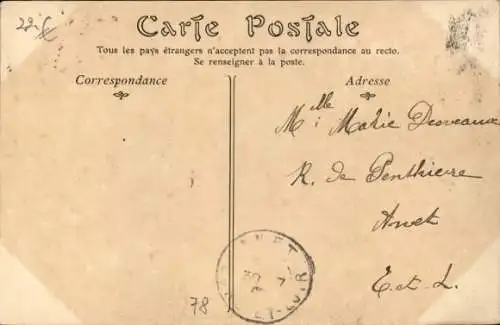 Carte Postale
Tous les pays étrangers n'acceptent pas la correspondance au recto.
Se renseigner à la poste.
Correspondance
Adresse
Mlle Marie Desveaux
R. de Penthièvre
Anet
E. et L.
ANET
ET-LOIR
78